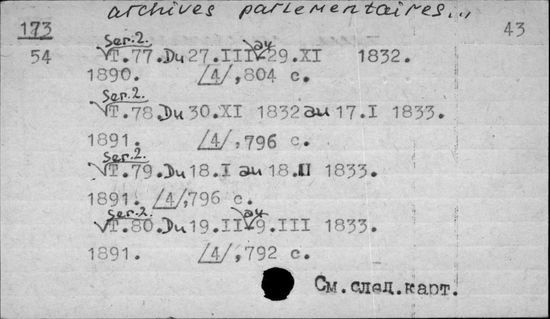 archives parlementaires...
173
54
43
Ser.2.
√T.77.Du 27.III-29.XI 1832.
au
1890. /4/,804 с.
Ser.2.
√T.78.Du 30.XI 1832 au 17.I 1833.
1891. /4/,796 с.
Ser.2.
√T.79.Du 18.I au 18.II 1833.
1891. /4/,796 с.
Ser.2.
√T.80.Du 19.II-9.III 1833.
au
1891. /4/,792 с.
См.след.карт.